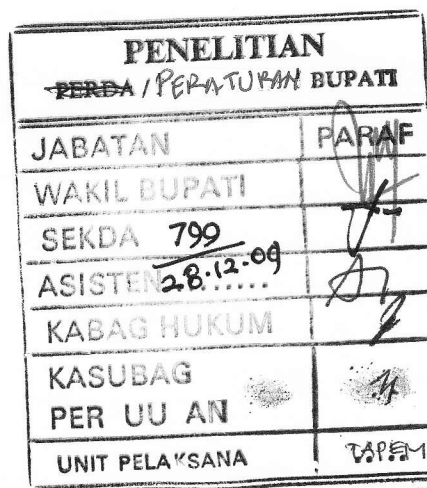 PENELITIAN
PERDA / PERATURAN BUPATI
JABATAN PARAF
WAKIL BUPATI
SEKDA 799
ASISTEN ........ 28.12.09
KABAG HUKUM
KASUBAG
PER UU AN
UNIT PELAKSANA TAPEM